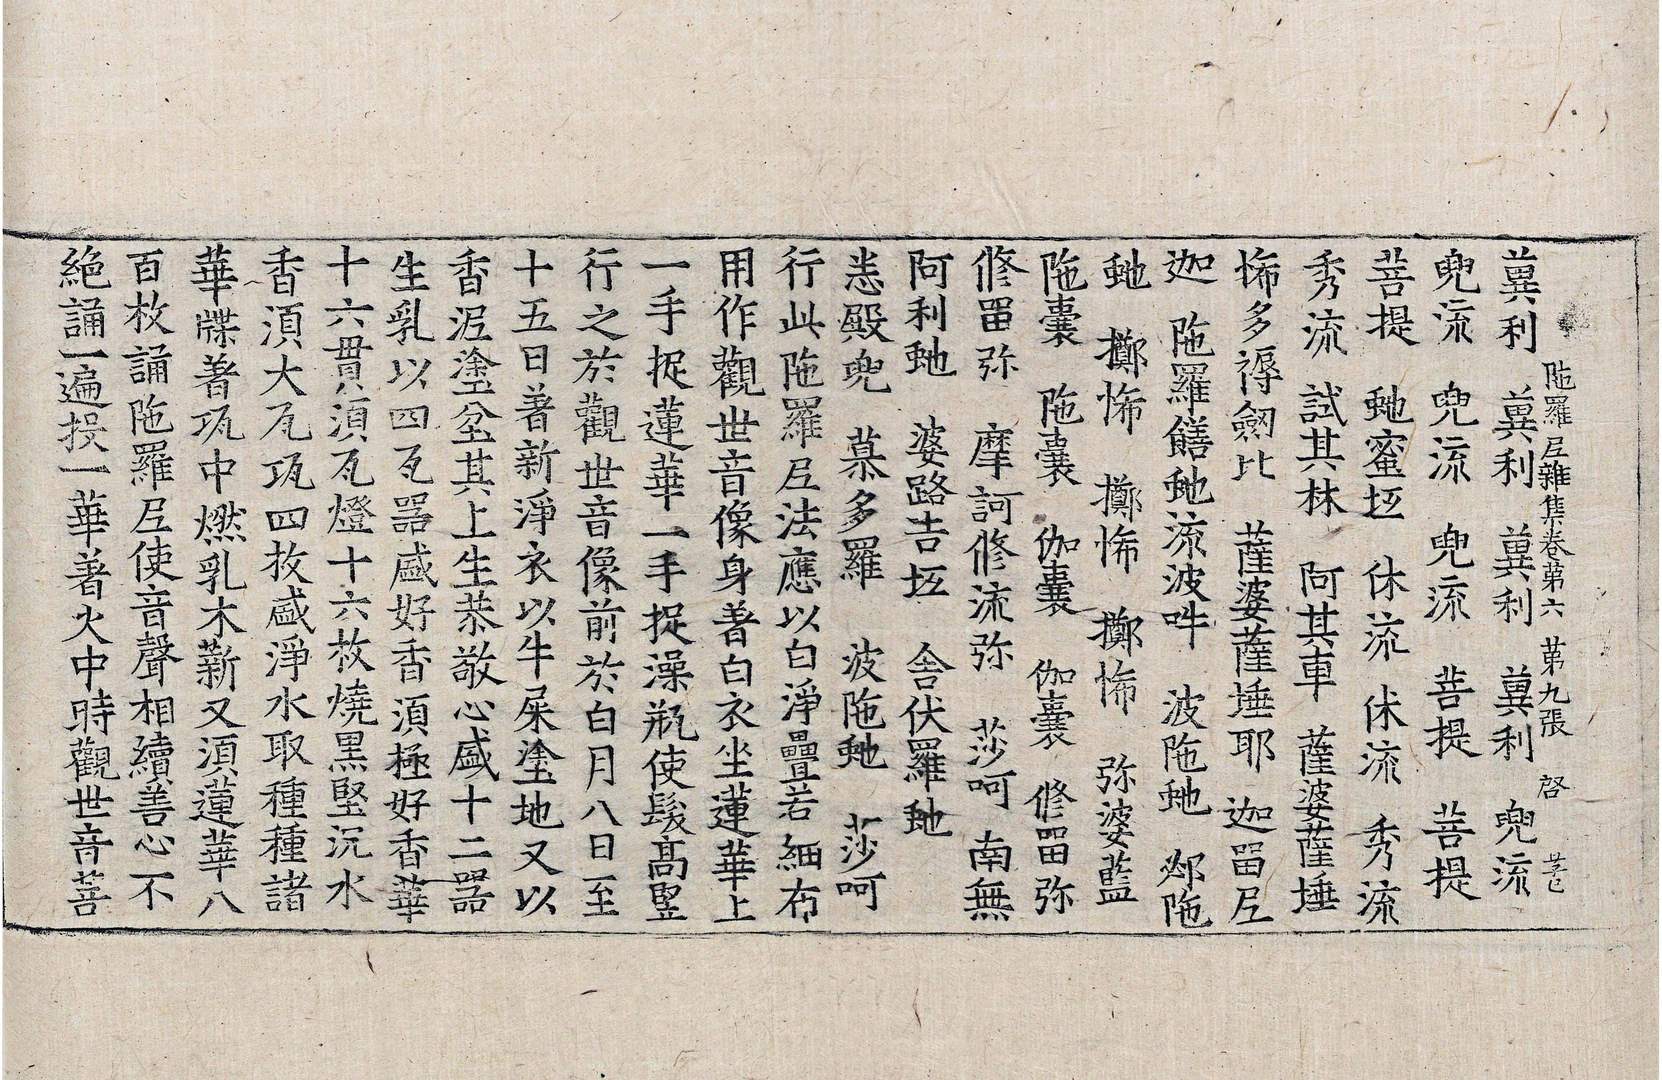 陁羅𡰱雜集卷第六　第九張　啓
䔬利　䔬利　䔬利　䔬利　兜流
兜流　兜流　兜流　菩提　菩提
菩提　虵蜜坻　休流　休流　秀流
秀流　試其林　阿其車　薩婆薩埵
悕多禣劒比　薩婆薩埵耶　迦留𡰱
迦　陁羅饍虵流波吽　波陁虵　䣋陁
虵　擲悕　擲悕　擲悕　弥婆藍
陁囊　陁囊　伽囊　伽囊　脩留弥
脩留弥　摩訶脩流弥　莎呵　南無
阿利虵　婆路吉坻　舍伏羅虵
恚殿兜　慕多羅　波陁虵　莎呵
行此陁羅𡰱法應以白淨疊若細布
用作觀世音像身著白衣坐蓮華上
一手捉蓮華一手捉澡瓶使髮髙竪
行之於觀世音像前於白月八日至
十五日著新淨衣以牛屎塗地又以
香泥塗坌其上生恭敬心盛十二器
生乳以四瓦器盛好香湏極好香華
十六貫湏瓦燈十六枚燒黑堅沉水
香湏大瓦瓨四枚盛淨水取種種諸
華牒著瓨中燃乳木薪又湏蓮華八
百枚誦陁羅𡰱使音聲相續善心不
絶誦一遍投一華著火中時觀世音菩